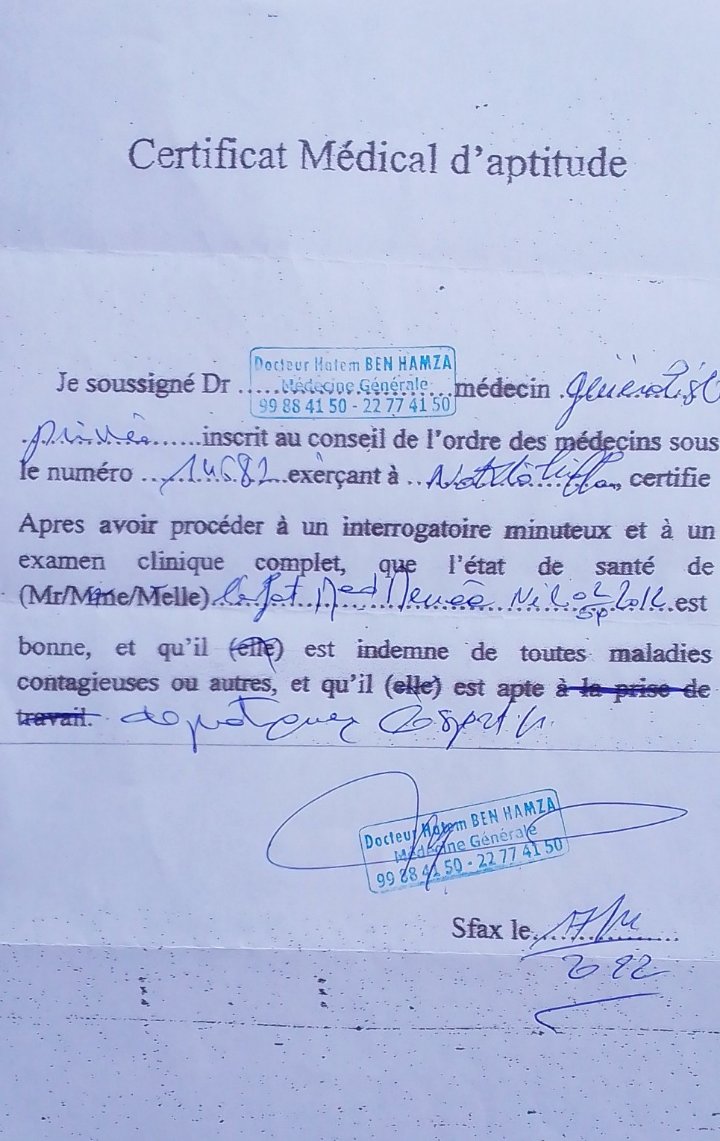 Certificat Médical d'aptitude
Docteur Hatem BEN HAMZA
Je soussigné Dr ..... Médecine Générale médecin généraliste
99 88 41 50 - 22 77 41 50
privée inscrit au conseil de l'ordre des médecins sous
le numéro 14682 exerçant à certifie
Apres avoir procéder à un interrogatoire minuteux et à un
examen clinique complet, que l'état de santé de
(Mr/Mme/Melle) Med est
bonne, et qu'il (elle) est indemne de toutes maladies
contagieuses ou autres, et qu'il (elle) est apte à la prise de
travail. de pratiquer le sport
Docteur Hatem BEN HAMZA
Médecine Générale
99 88 41 50 - 22 77 41 50
Sfax le
2022